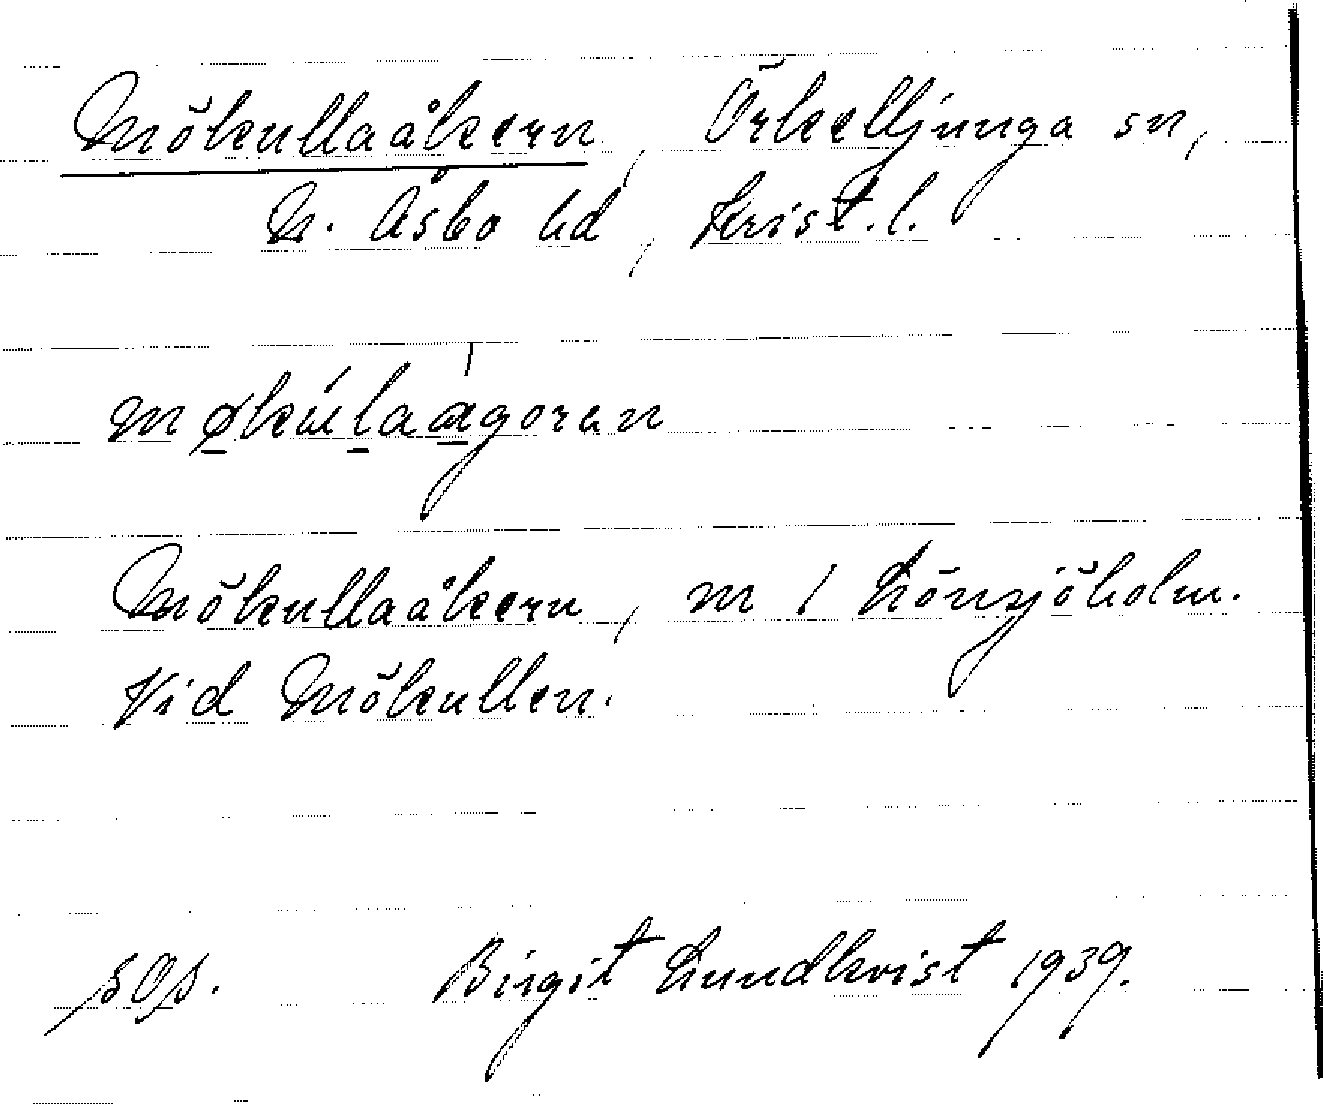 Mökullaåkern, Örkelljunga sn,
N. Åsbo hd, Krist. l.
møkúlaágoren
Mökullaåkern, m / Lönsjöholm.
Vid Mökullen.
sOs. Birgit Lundkvist 1939.